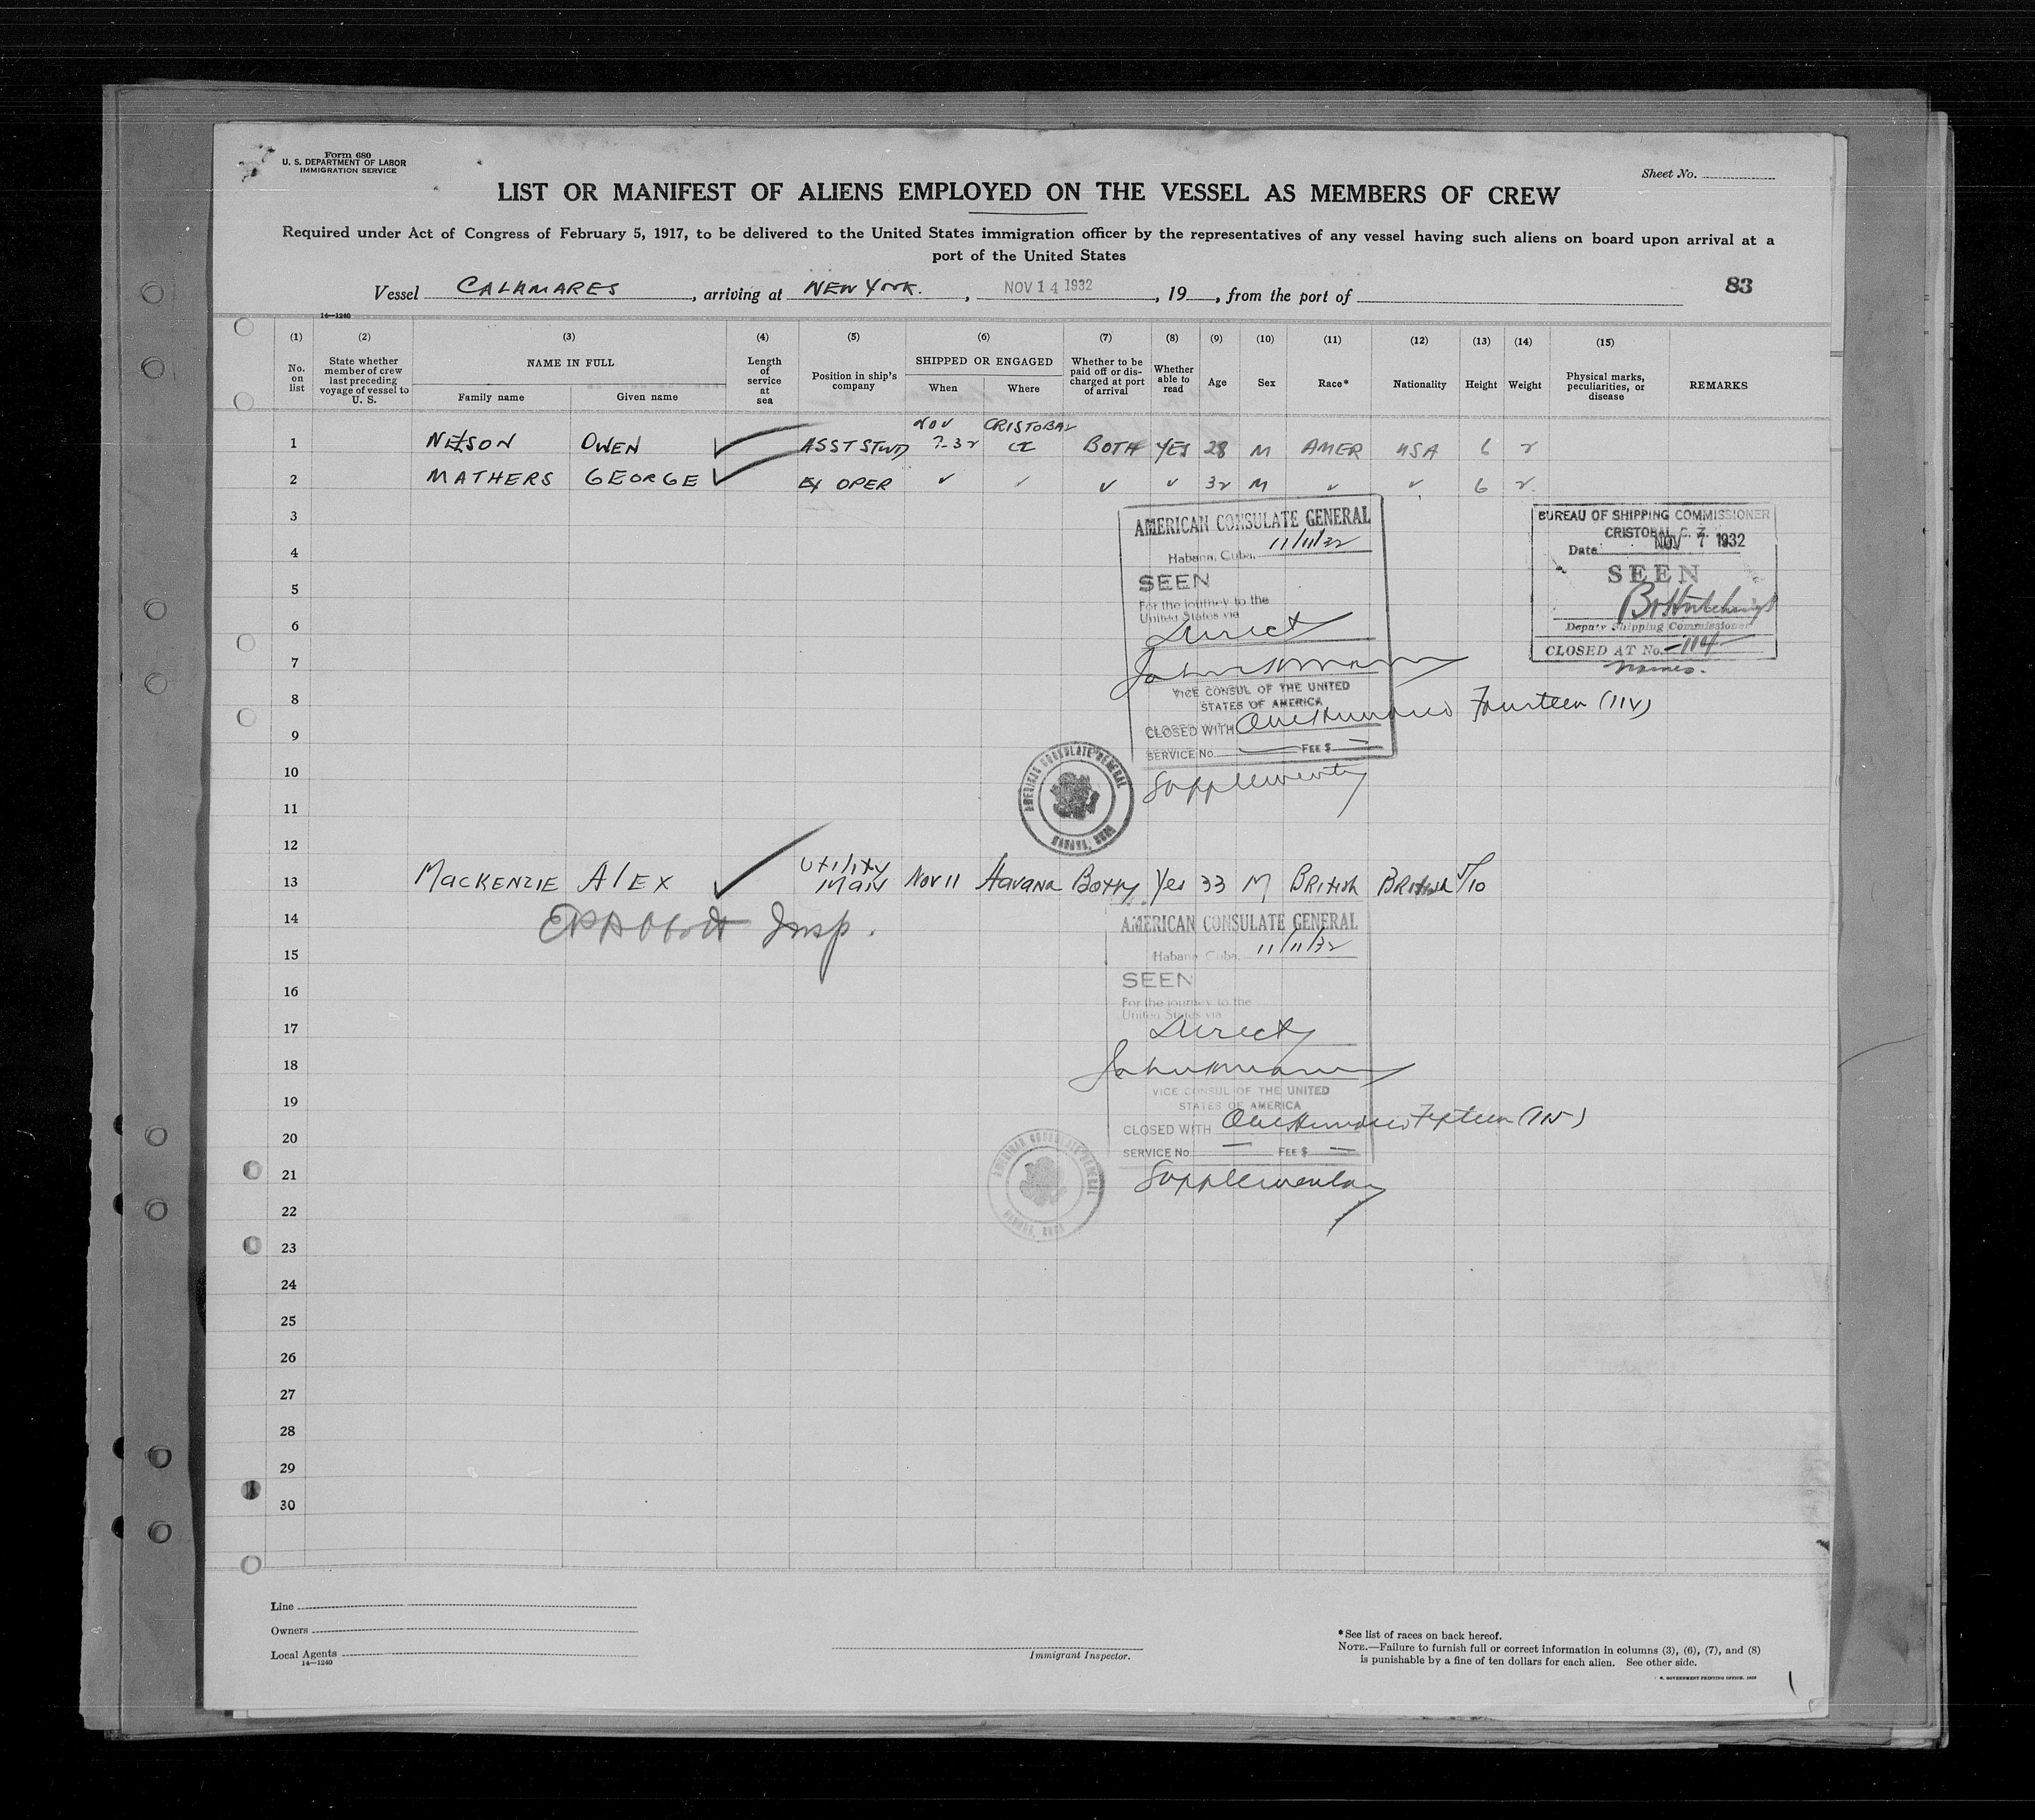 Form 680
U. S. DEPARTMENT OF LABOR
IMMIGRATION SERVICE
Sheet No.
LIST OR MANIFEST OF ALIENS EMPLOYED ON THE VESSEL AS MEMBERS OF CREW
Required under Act of Congress of February 5, 1917, to be delivered to the United States immigration officer by the representatives of any vessel having such aliens on board upon arrival at a
port of the United States
Vessel CALAMARES, arriving at NEW YORK., NOV 14 1932, 19 , from the port of
83
14—1240
(1) (2) (3) (4) (5) (6) (7) (8) (9) (10) (11) (12) (13) (14) (15)
No. on list
State whether member of crew last preceding voyage of vessel to U. S.
NAME IN FULL
Family name
Given name
Length of service at sea
Position in ship's company
SHIPPED OR ENGAGED
When
Where
Whether to be paid off or discharged at port of arrival
Whether able to read
Age
Sex
Race*
Nationality
Height
Weight
Physical marks, peculiarities, or disease
REMARKS
NOV CRISTOBAL
1 NELSON OWEN ✓ ASST STWD 7-32 CZ BOTH YES 28 M AMER USA 6 2
2 MATHERS GEORGE ✓ OPER ✓ ✓ ✓ ✓ 32 M ✓ ✓ 6 2
3
4
5
6
7
8
9
10
11
12
AMERICAN CONSULATE GENERAL
Habana, Cuba, 11/11/32
SEEN
For the journey to the
United States via
Direct
VICE CONSUL OF THE UNITED
STATES OF AMERICA
CLOSED WITH One Hundred Fourteen
SERVICE No. — FEE $ —
Supplementy
AMERICAN CONSULATE GENERAL
HABANA, CUBA
BUREAU OF SHIPPING COMMISSIONER
CRISTOBAL C. Z.
Date NOV 7 1932
SEEN
Deputy Shipping Commissioner
CLOSED AT No.
names.
13 MACKENZIE ALEX ✓ Utility MAN NOV 11 Havana Both Yes 33 M British British 5/10
14
15
16
17
18
19
20
21
22
23
24
25
26
27
28
29
30
Insp.
AMERICAN CONSULATE GENERAL
Habana, Cuba, 11/11/32
SEEN
For the journey to the
United States via
Direct
VICE CONSUL OF THE UNITED
STATES OF AMERICA
CLOSED WITH One Hundred Fifteen (115)
SERVICE No. — FEE $ —
Supplementary
AMERICAN CONSULATE GENERAL
HABANA, CUBA
Line
Owners
Local Agents
14—1240
Immigrant Inspector.
*See list of races on back hereof.
NOTE.—Failure to furnish full or correct information in columns (3), (6), (7), and (8)
is punishable by a fine of ten dollars for each alien. See other side.